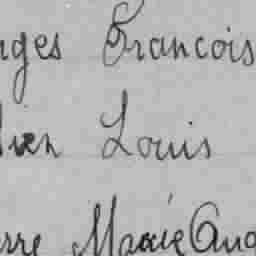 rges Francois
ien Louis
rre Marie And